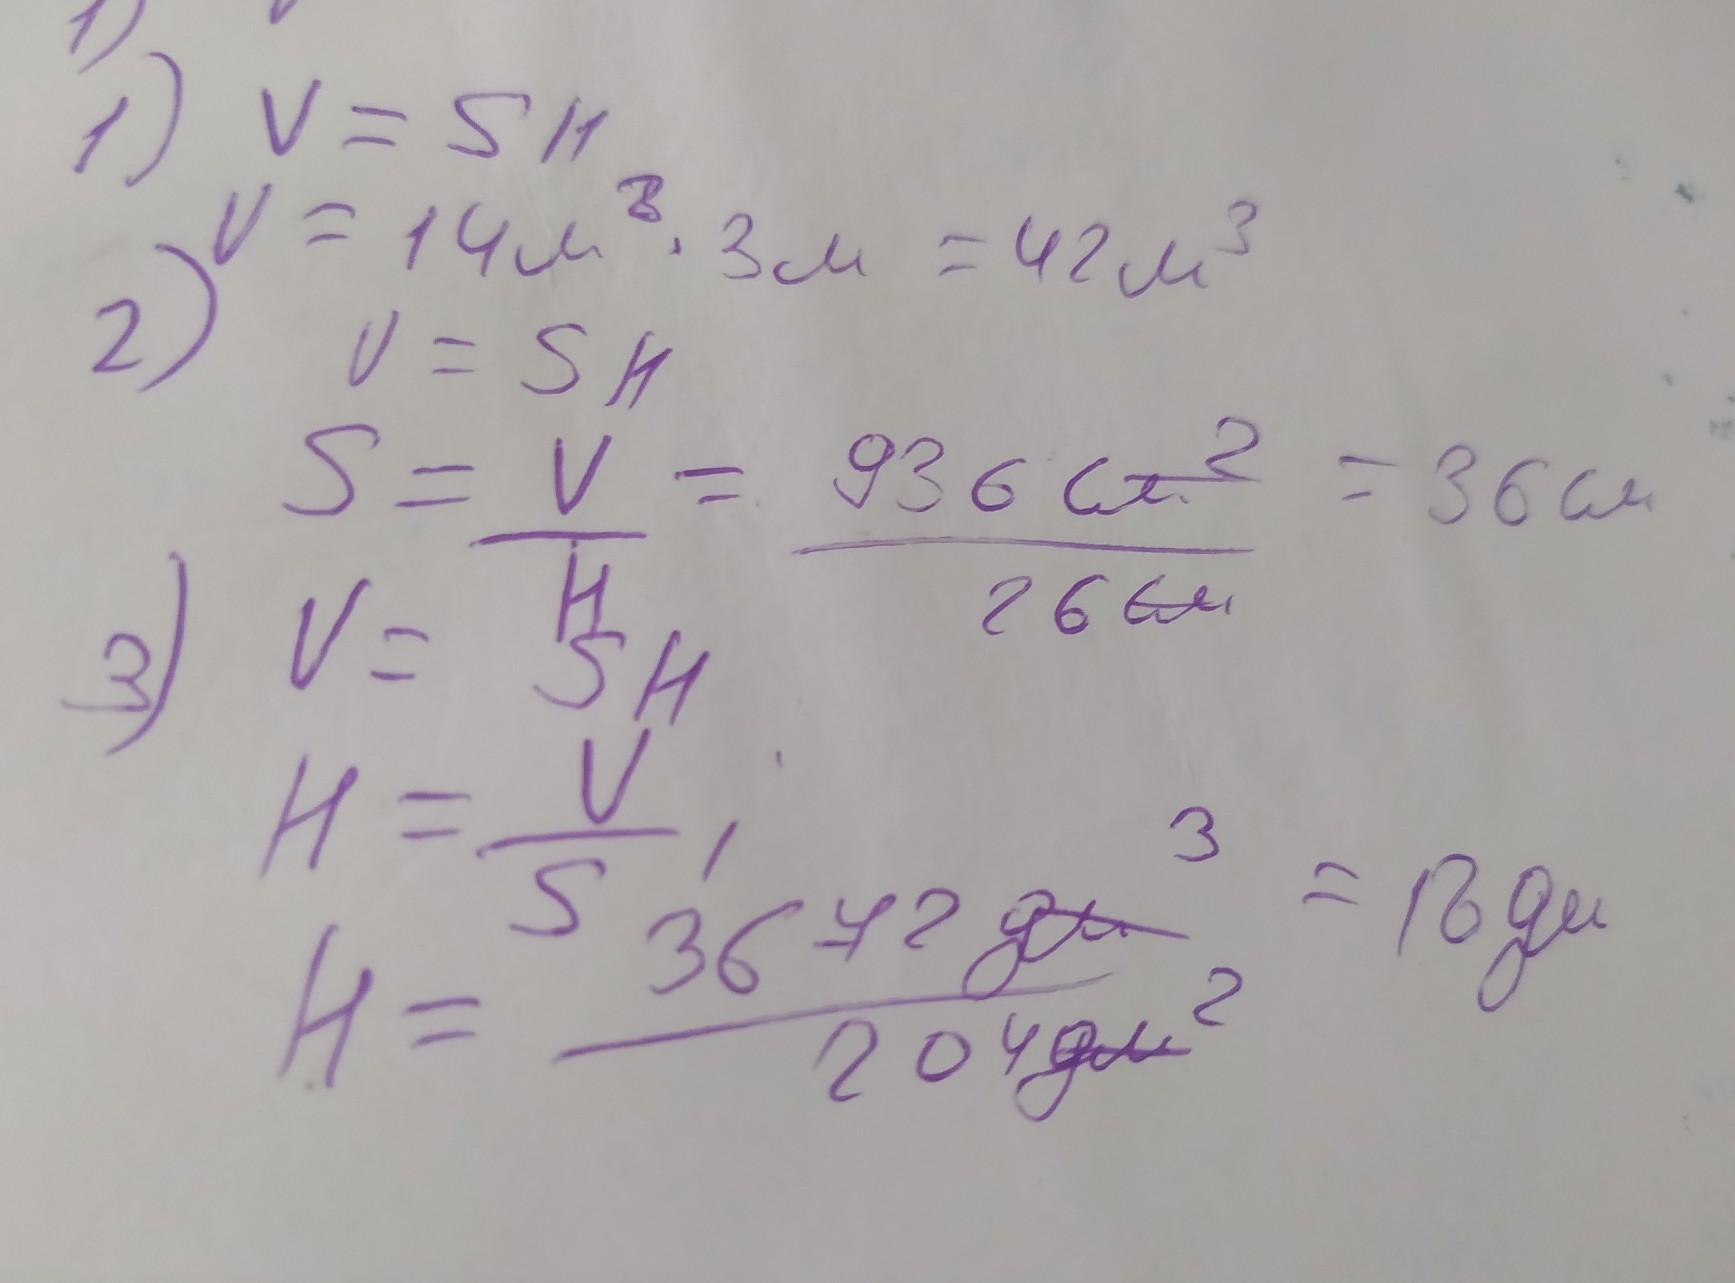 1)
1) V = SH
V = 14м² · 3м = 42м³
2) V = SH
S = V/H = 936 см²/26 см = 36 см
3) V = SH
H = V/S,
H = 3672 дм³/204 дм² = 18 дм